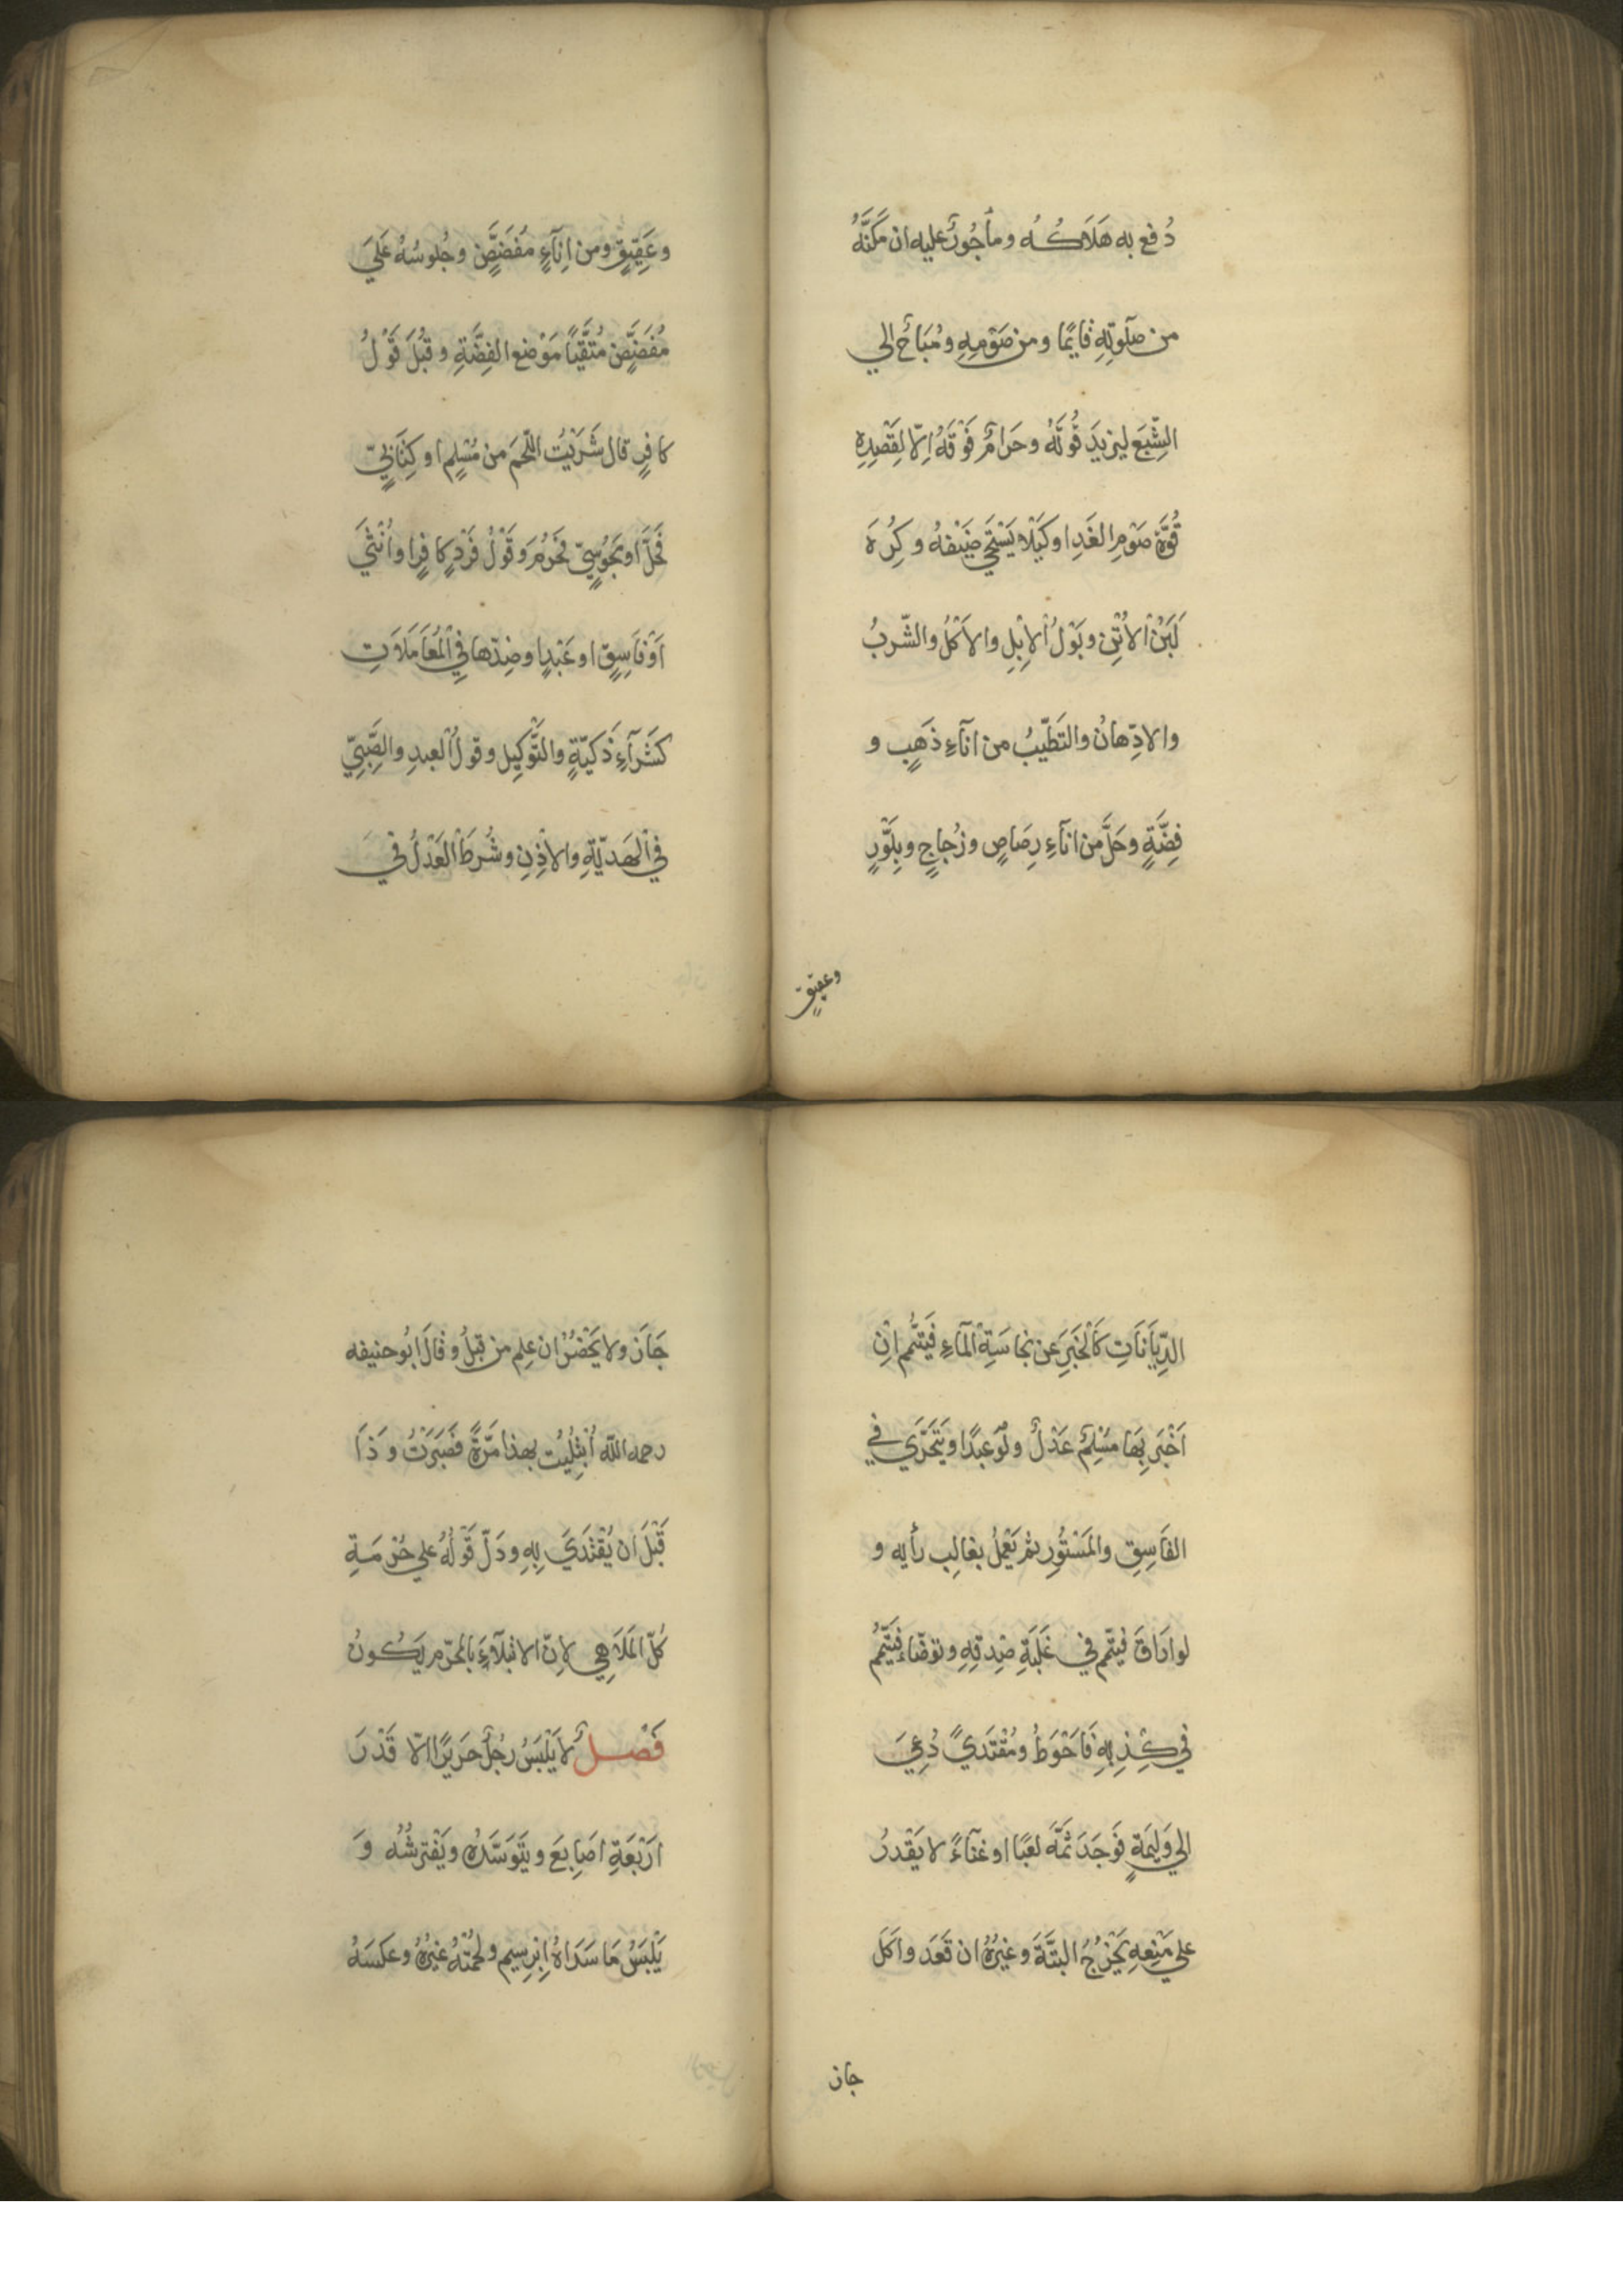 دُفع به هَلَاكُه ومأجُورٌ عليه ان مَكَنَّهُ
من صلوتِهِ قايمًا ومن صَوْمِهِ ومُبَاحٌ الي
الشِّبَعِ ليزيدَ قُوَّتَهُ وحَرامٌ فَوْقَهُ اِلّا لِقَصْدِهِ
قُوَّةَ صَوْمِ الغَدِ او كَيْلا يَسْتَحْيِ ضَيْفُهُ وكُرِهَ
لَبَنُ الاُتُنِ وبَوْلُ الاِبِلِ والاَكْلُ والشّربُ
والادِّهانُ والتَطَيّبُ من اناءِ ذَهَبٍ و
فِضَّةٍ وحَلَّ من اناءِ رِصَاصٍ وزُجاجٍ وبِلَّوْرٍ
وعقيقٍ
وعَقِيقٍ ومن اِناءٍ مُفَضَّضٍ وجُلوسُهُ عَلَي
مُفَضَّضٍ مُتَّقِيًا مَوْضعَ الفِضَّةِ وقُبِلَ قَوْلُ
كافرٍ قال شَرَيْتُ اللّحمَ من مُسْلِمٍ او كِتَابِيٍّ
فَحَلَّ او مَجُوسِيٍّ فحَرُمَ وقَوْلُ فَرْدٍ كافرٍ او اُنْثَي
اَوْ فَاسِقٍ او عَبْدٍ او ضِدّها فِي الْمُعَامَلَاتِ
كَشَرآءِ ذَكيّةٍ والتَّوْكِيل وقولُ العبدِ والصَّبِيِّ
في الْهَديّةِ والاِذْنِ وشُرِطَ الْعَدْلُ في
الدِّيَانَاتِ كَالْخَبَرِ عن نجاسَةِ الْمآءِ فَيَتَيَمَّمُ اِنْ
اَخْبَرَ بِها مُسْلِمٌ عَدْلٌ ولَوْ عبدًا ويَتَحَرَّي في
الفَاسِقِ والمَسْتُورِ ثم يَعْمَلُ بغالِب رأيه و
لو اراقَ فيتمّم في غَلَبَةِ صِدقِهِ وتوضّاءَ فيَتَيَمَّمُ
في كِذْبِهِ فَاَحْوَطُ ومُقْتَدَيً دُعِيَ
الي وَلِيمَةٍ فَوَجَدَ ثَمَّهَ لَعبًا او غنآءً لا يَقْدرُ
علي مَنْعِهِ يَخْرُجُ البتَّةَ وغيرُهُ ان قَعَدَ واَكَلَ
جان
جَازَ ولا يَحْضُرُ ان علم من قبلُ وقالَ ابُو حنيفه
رحمه الله اُبْتُلِيْت بهذا مَرّةً فصَبَرْتُ وَذَا
قَبْلَ ان يُقْتَدَي بِهِ ودَلَّ قَوْلُهُ علي حُرْمَةِ
كُلّ المَلَاهِي لِانّ الابْتِلآءَ بالمحرّم يَكُونُ
فَصْلٌ لا يَلْبَسُ رجُلٌ حَريرًا الّا قَدْرَ
ارْبَعَةِ اصابعَ ويَتَوَسَّدُهُ ويَفْتَرِشُهُ وَ
يَلْبَسُ مَا سَدَاهُ اِبْرِيسم ولُحْمَتُهُ غيرُهُ وعكسَهُ